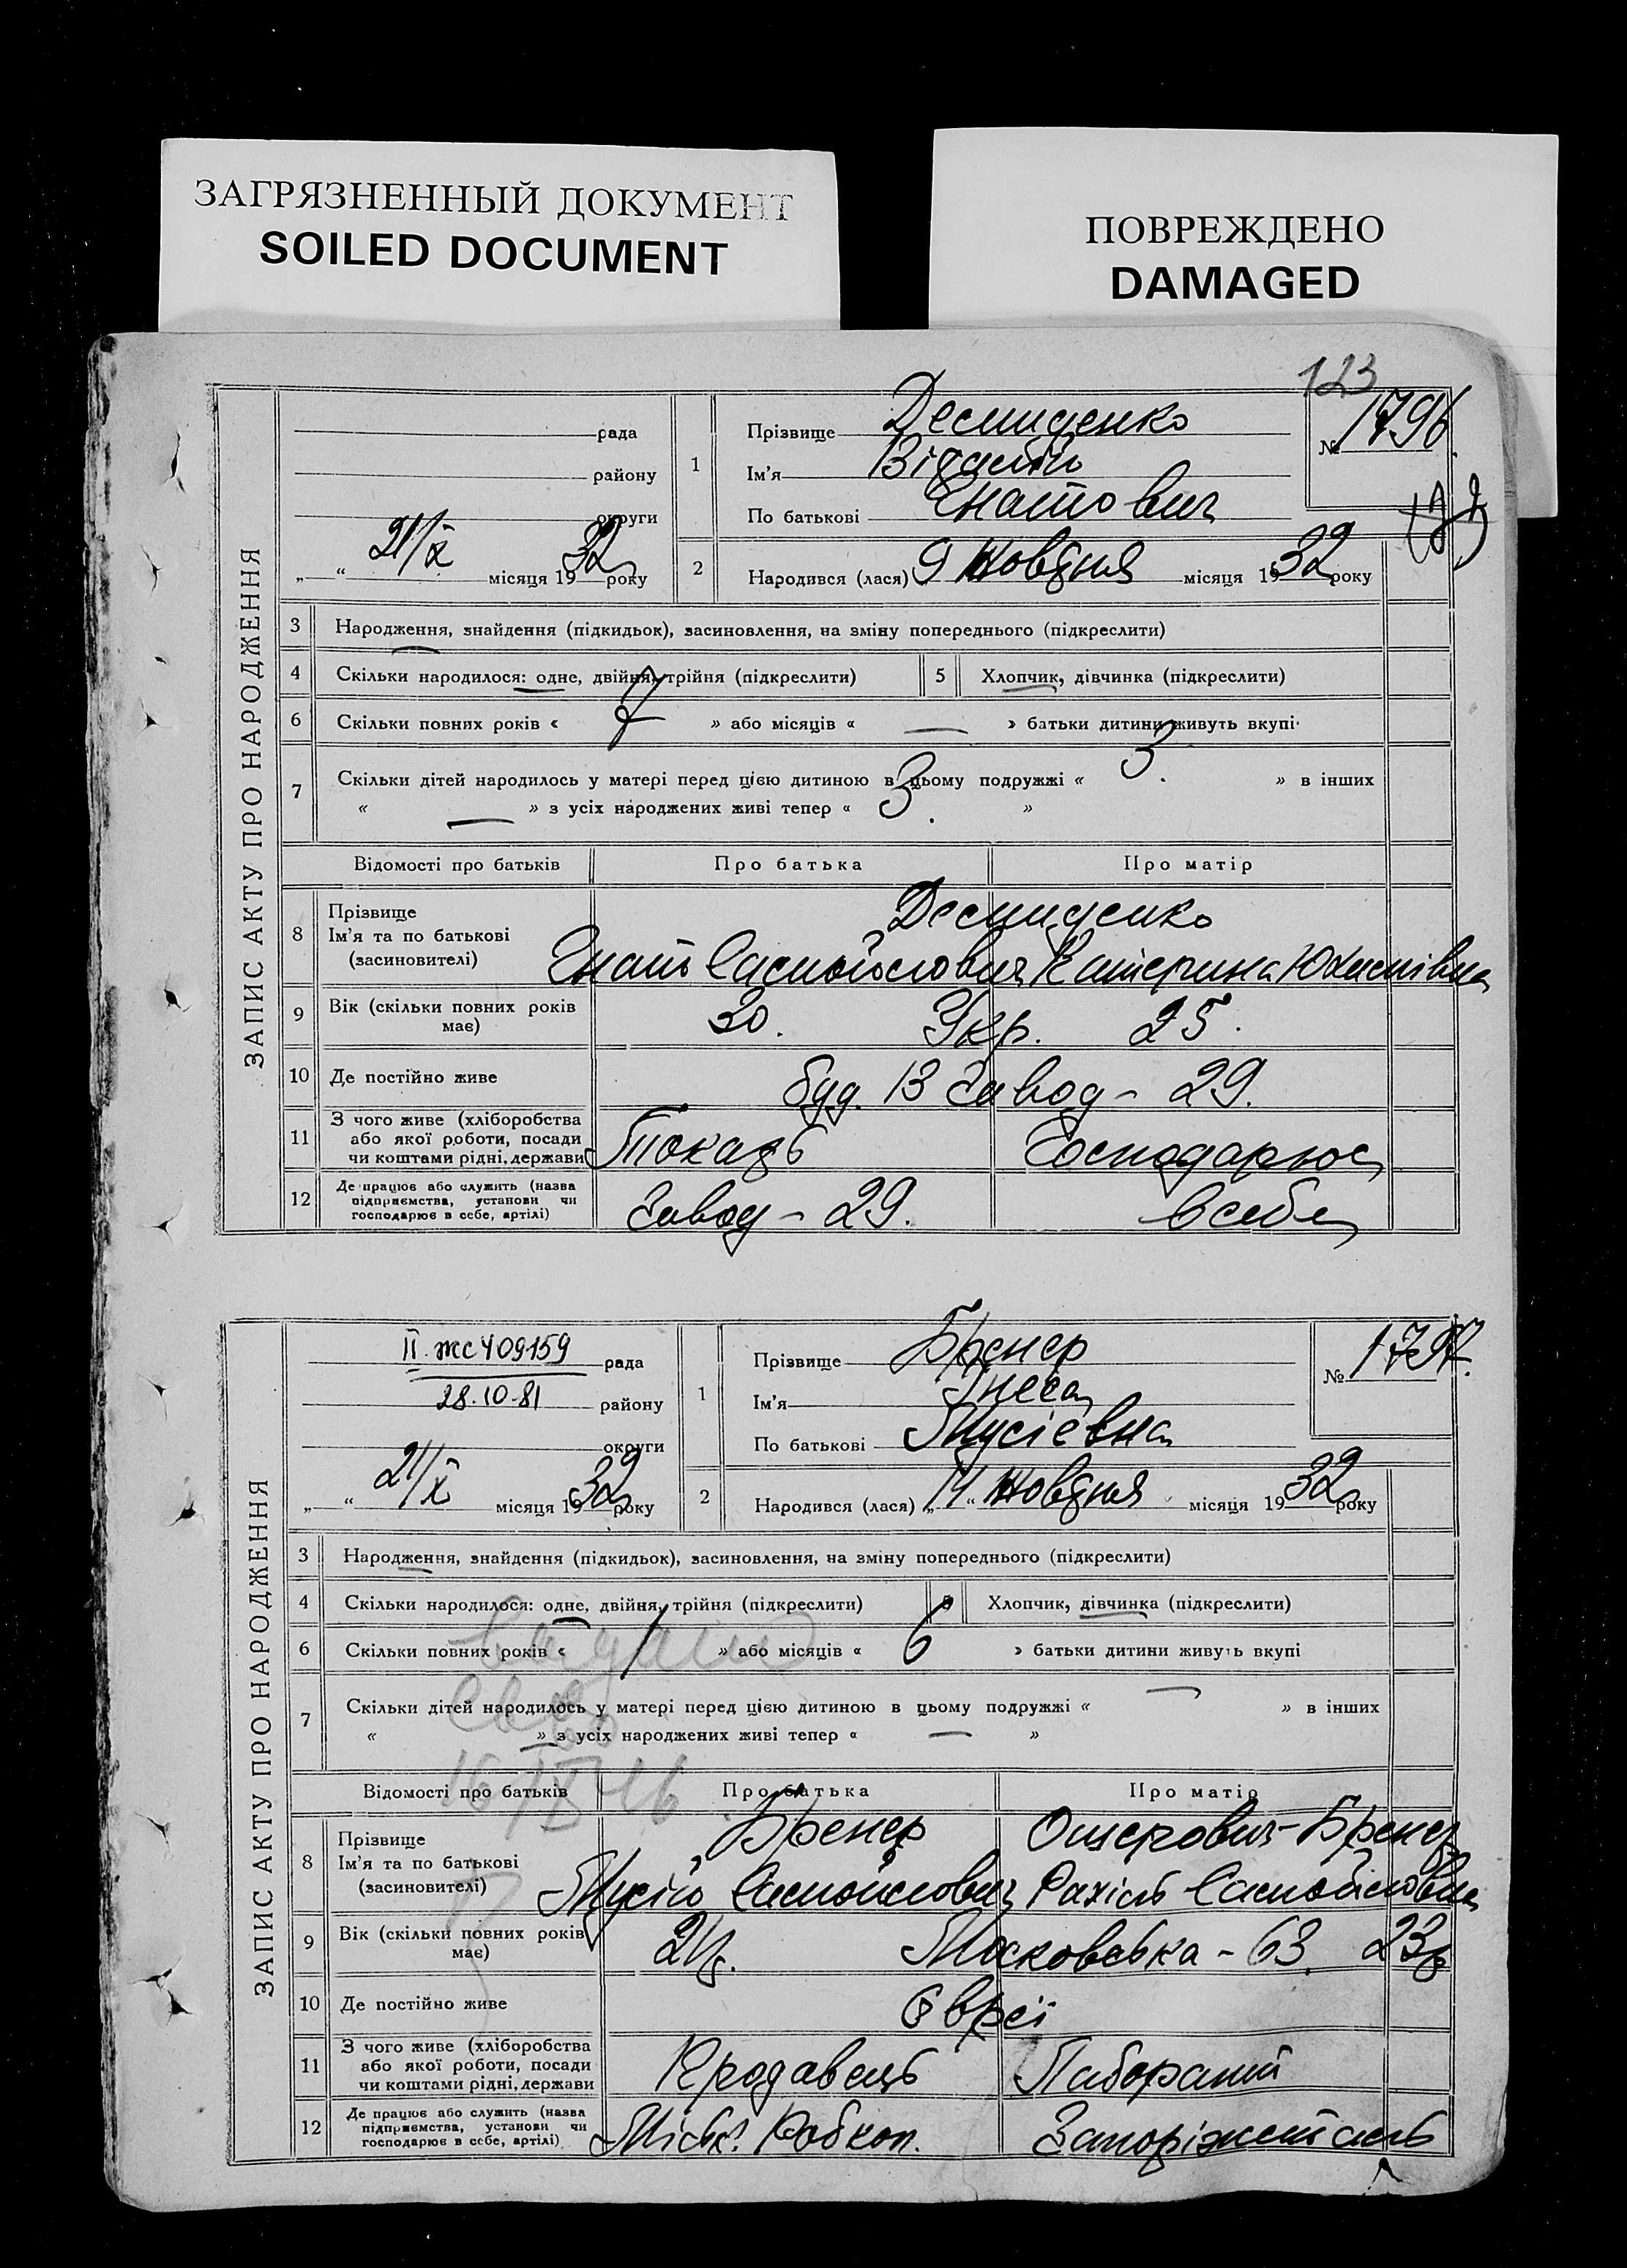 ЗАГРЯЗНЕННЫЙ ДОКУМЕНТ
SOILED DOCUMENT
ПОВРЕЖДЕНО
DAMAGED
123
ЗАПИС АКТУ ПРО НАРОДЖЕННЯ
рада
району
округи
„ “ 21/X місяця 1932 року
1 Прізвище Демиденко
Ім'я Віталій
По батькові Гнатович
№ 1796.
2 Народився (лася) 9 жовтня місяця 1932 року
3 Народження, знайдення (підкидьок), засиновлення, на зміну попереднього (підкреслити)
4 Скільки народилося: одне, двійня, трійня (підкреслити) 5 Хлопчик, дівчинка (підкреслити)
6 Скільки повних років « 7 » або місяців « — » батьки дитини живуть вкупі
7 Скільки дітей народилось у матері перед цією дитиною в цьому подружжі « 3. » в інших
« — » з усіх народжених живі тепер « 3. »
Відомості про батьків Про батька Про матір
8 Прізвище Демиденко
Ім'я та по батькові
(засновителі) Гнат Самойлович Катерина Юхимівна
9 Вік (скільки повних років має) 30. Укр. 25.
10 Де постійно живе буд. 13 Завод - 29.
11 З чого живе (хліборобства
або якої роботи, посади
чи коштами рідні, держави Токарь Господарює
12 Де працює або служить (назва
підприємства, установи чи
господарює в себе, артілі) Завод - 29. в себе
ЗАПИС АКТУ ПРО НАРОДЖЕННЯ
II. ЖС 409159 рада
28.10.81 району
округи
„ “ 21/X місяця 1932 року
1 Прізвище Бренер
Ім'я Інеса
По батькові Мусієвна
№ 1797.
2 Народився (лася) „14“ жовтня місяця 1932 року
3 Народження, знайдення (підкидьок), засиновлення, на зміну попереднього (підкреслити)
4 Скільки народилося: одне, двійня, трійня (підкреслити) 5 Хлопчик, дівчинка (підкреслити)
6 Скільки повних років « 1 » або місяців « 6 » батьки дитини живуть вкупі
7 Скільки дітей народилось у матері перед цією дитиною в цьому подружжі « — » в інших
« — » з усіх народжених живі тепер « — »
Відомості про батьків Про батька Про матір
8 Прізвище Бренер Ошерович-Бренер
Ім'я та по батькові
(засиновителі) Мусій Самойлович Рахіль Самойловна
9 Вік (скільки повних років має) Московська - 63. 23р
10 Де постійно живе Євреї
11 З чого живе (хліборобства
або якої роботи, посади
чи коштами рідні, держави Продавець Лаборант
12 Де працює або служить (назва
підприємства, установи чи
господарює в себе, артілі) Міськ. Робкоп. Запоріжсталь